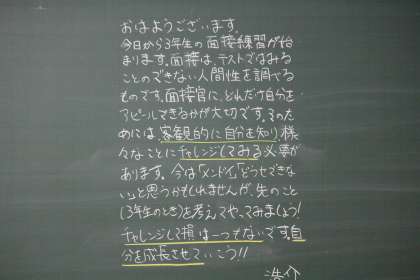 おはようございます。
今日から3年生の面接練習が始
まります。面接は、テストではみる
ことのできない人間性を調べる
ものです。面接官に、どれだけ自分を
アピールできるかが大切です。そのた
めには、客観的に自分を知り様
々なことにチャレンジしてみる必要が
あります。今は「メンドイ」「どうせできな
い」と思うかもしれませんが、先のこと
(3年生のとき)を考えてやってみましょう!
チャレンジして損は一つもないです。自
分を成長させていこう!!
浩介